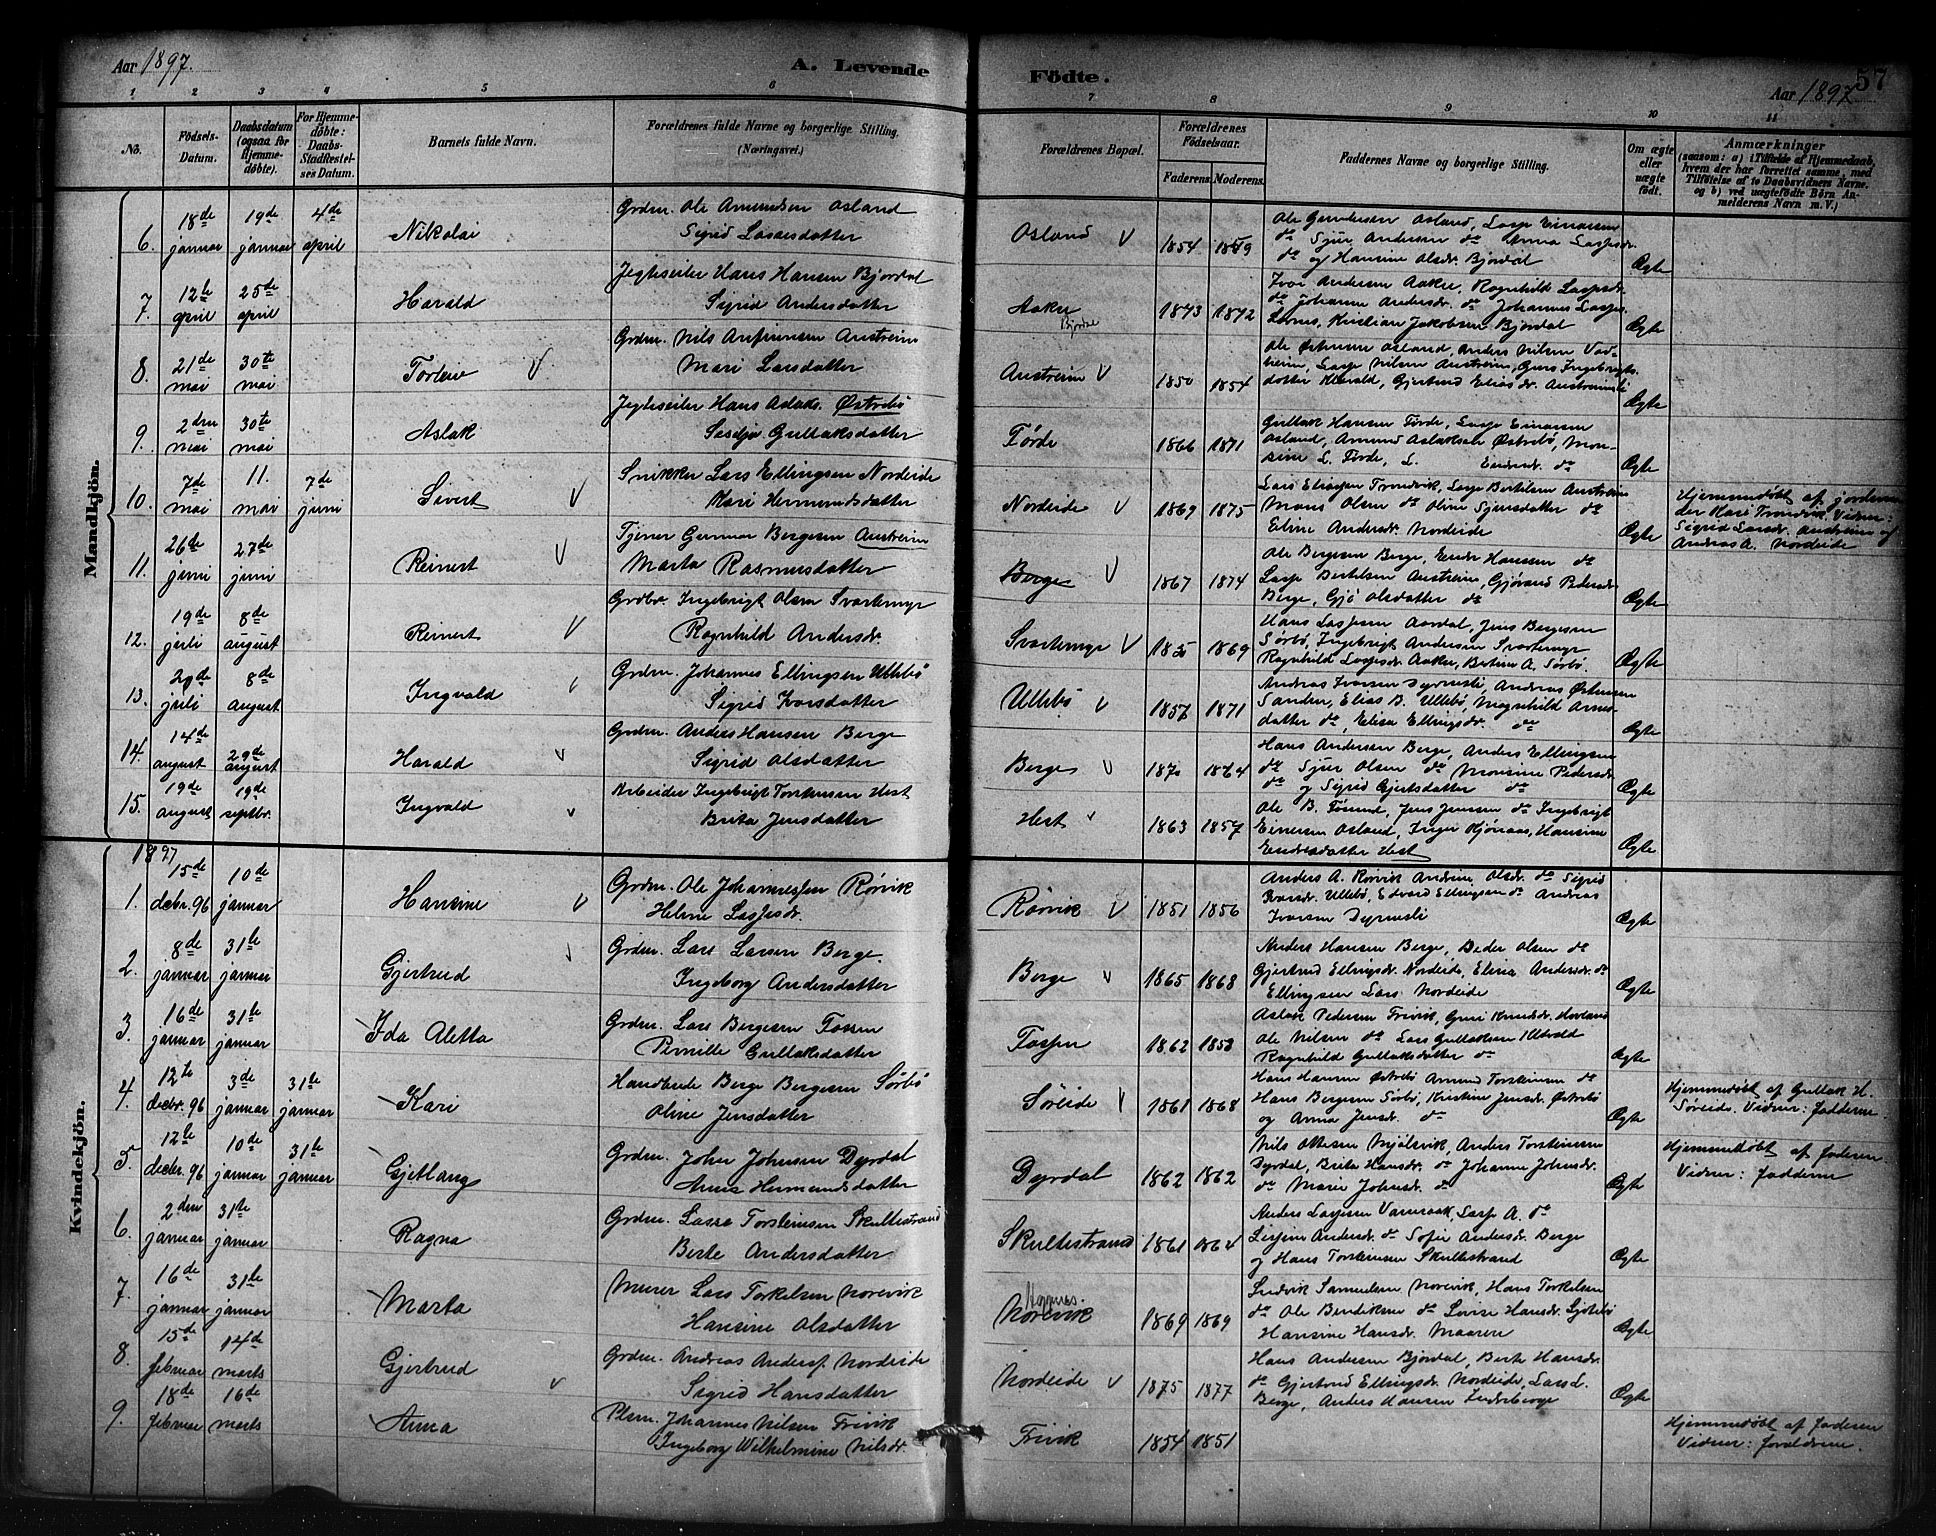 Aar 1897.
A. Levende Födte.
57
Aar 1897
1 2 3 4 5 6 7 8 9 10 11
No.
Födsels-Datum.
Daabsdatum (ogsaa for Hjemmedöbte).
For Hjemmedöbte: Daabs-Stadfæstelses Datum.
Barnets fulde Navn.
Forældrenes fulde Navne og borgerlige Stilling. (Næringsvei.)
Forældrenes Bopæl.
Forældrenes Födselsaar.
Faderens. Moderens.
Faddernes Navne og borgerlige Stilling.
Om ægte eller uægte födt.
Anmærkninger
(saasom: a) i Tilfælde af Hjemmedaab, hvem der har forrettet samme, med Tilföielse af to Daabsvidners Navne. og b) ved uægtefödte Börn Anmelderens Navn m. V.)
Mandkjön.
6. 18de januar 19de januar 4de april Nikolai
Grdm. Ole Amundsen Osland
Sigrid Lassesdatter
Osland V 1854 1859
Ole Gundersen Osland, Lasse Einarsen
do Sjur Andersen do Anna Lassesdr.
do og Hansine Olsdr. Bjordal
Ægte
7. 12te april 25de april Harald
Jegtseiler Hans Hansen Bjordal
Sigrid Andersdatter
Aaker Bjordal 1873 1872
Ivar Andersen Aaker, Ragnhild Lassesdr.
do Johanne Andersdr. do Johannes Lasses.
Kristian Jakobsen Bjordal
Ægte
8. 21de mai 30te mai V
Grdm. Nils Anfinnsen Austreim
Mari Larsdatter
Austreim V 1850 1854
Ole Østensen Osland, Anders Nilsen Vad-
heim, Lasse Nilsen Austreim, Guri Ingebrigts-
datter Gjertrud Eliasdr. Austreim
Ægte
9. 2den mai 30te mai Aslak
Jegtseiler Hans Aslaks. Østrebö
Gullaksdatter
Förde 1866 1871
Gullak Hansen Förde, Lasse Einarsen
Osland, Amund Aslaksen Østrebö, Mon-
sine L. Förde, L. do
Ægte
10. 7de mai 11. mai 7de juni Sivert V
Snikker Lars Ellingsen Nordeide
Mari Hermundsdatter
Nordeide V 1869 1875
Lars Eliasen Trondvik, Lasse Bertilsen Austreim
Mons Olsen do Oline Sjursdatter do
Eline Andersdr. Nordeide
Ægte
Hjemmedöbt af jordemo-
der Mari Trondvik. Vidner:
Sigrid Larsdr. Austreim og
Andreas A. Nordeide
11. 26de juni 27de juni Reinert V
Tjener Gunnar Bergesen Austreim
Marta Rasmusdatter
Berge V 1867 1874
Ole Bergesen Berge, Endre Hanssen do
Lasse Bertelsen Austreim, Gjörand Pedersdr.
Berge, Gjö Olsdatter do
Ægte
12. 19de juli 8de august Reinert V
Grdbr. Ingebrigt Olsen Svartemyr
Ragnhild Andersdr.
Svartemyr V 1869
Hans Lassesen Aardal, Jens Bergesen
Sörbö, Ingebrigt Andersen Svartemyr
Ragnhild Lassesdr. Aaker, Bertine A. Sörbö
Ægte
13. 29de juli 8de august Ingvald V
Grdm. Johannes Ellingsen Ullebö
Sigrid Ivarsdatter
Ullebö V 1857 1871
Andreas Ivarsen Dyrnesli, Andreas Østensen
Sanden, Elias B. Ullebö, Magnhild Arnes-
datter do, Elisa Ellingsdr. do
Ægte
14. 14de august 29de august Harald V
Grdm. Anders Hansen Berge
Sigrid Olsdatter
Berge V 1870 1864
Hans Andersen Berge, Anders Ellingsen
do Sjur Olsen do Monsine Pedersdr.
do og Sigrid Gjertsdatter do
Ægte
15. 19de august 19de septbr. Ingvald V
Arbeider Ingebrigt Torstensen Hest
Brita Jensdatter
Hest V 1863 1857
Ole B. Jens Jenssen do Ingebrigt
Einersen Osland, Inger Hansine
Endresdatter Hest
Ægte
Kvindekjön.
1897
1. 15de decbr. 96 10de januar Hansine V
Grdm. Ole Johannessen Rörvik
Heline Lassesdr.
Rörvik V 1851 1856
Anders A. Rörvik Andrine Olsdr. do Sigrid
Ivarsdr. Ullebö, Edvard Ellingsen do Andreas
Ivarsen Dyrnesli
Ægte
2. 8de januar 31te januar Gjertrud V
Grdm. Lars Larsen Berge.
Ingeborg Andersdatter
Berge V 1865 1868
Anders Hansen Berge, Peder Olsen do
Gjertrud Ellingsdr. Nordeide, Elina Andersdr. do
Ellingsen Lars Nordeide
Ægte
3. 16de januar 31te januar Ida Aletta
Grdm. Lars Bergesen Fossen
Pernille Gullaksdatter
Fossen 1862 1858
Aslak Pedersen Trivik, Guri Knudsdr. Hovland
Ole Nilsen do Lars Gullaksen
Ragnhild Gullaksdatter do
Ægte
4. 12te decbr. 96 3de januar 31te januar Kari
Handlende Berge Bergesen Sörbö
Oline Jensdatter
Söreide V 1861 1868
Hans Hansen Østrebö Amund Torsteinsen do
Hans Bergesen Sörbö, Kristine Jensdr. Østrebö
og Anna Jensdr. do
Ægte
Hjemmedöbt af Gullak H.
Söreide. Vidner: fadderne
5. 12te decbr. 96 10de januar 31te januar Gjetlaug
Grdm. Joher Johnsen Dyrdal
Anna Hermundsdatter
Dyrdal 1862 1862
Nils Ottesen Mjölsvik, Anders Torsteinsen
Dyrdal, Brita Hansdr. do Johanne Johnsdr.
do Marie Johnsdr. do
Ægte
Hjemmedöbt af faderen.
Vidner: fadderne
6. 2den januar 31te januar Ragna
Grdm. Lasse Torsteinsen Skultestrand
Berte Andersdatter
Skultestrand 1861 1864
Anders Lassesen Vamraak, Lasse A. do
Andersdr. do Sofie Andersdr. Berge
og Hans Torsteinsen Skultestrand
Ægte
7. 16de januar 31te januar Marta
Murer Lars Torkelsen Norevik
Hansine Olsdatter
Hopnes.
Norevik 1869 1869
Ludvik Samuelsen Norevik, Hans Torkelsen
do Ole Bendiksen do Lovise Hansdr.
Hansine Hansdr. Maaren
Ægte
8. 15de februar 14de marts Gjertrud V
Grdm. Andreas Anderss. Nordeide
Sigrid Hansdatter
Nordeide V 1875 1877
Hans Andersen Bjordal, Berta Hansdr.
do Gjertrud Ellingsdr. Nordeide, Lars L.
Berge, Anders Hansen Indreberge
Ægte
9. 18de februar 16de marts Anna
Plsm. Johannes Nilsen Trivik
Ingeborg Wilhelmine Nilsdr.
Trivik 1854 1851
Hjemmedöbt af faderen
Vidner: forældrene.